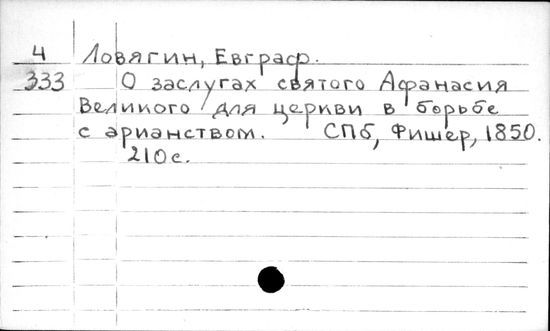 4 Ловягин, Евграф.
333 О заслугах святого Афанасия
Великого для церкви в борьбе
с арианством. СПб, Фишер, 1850.
210 с.